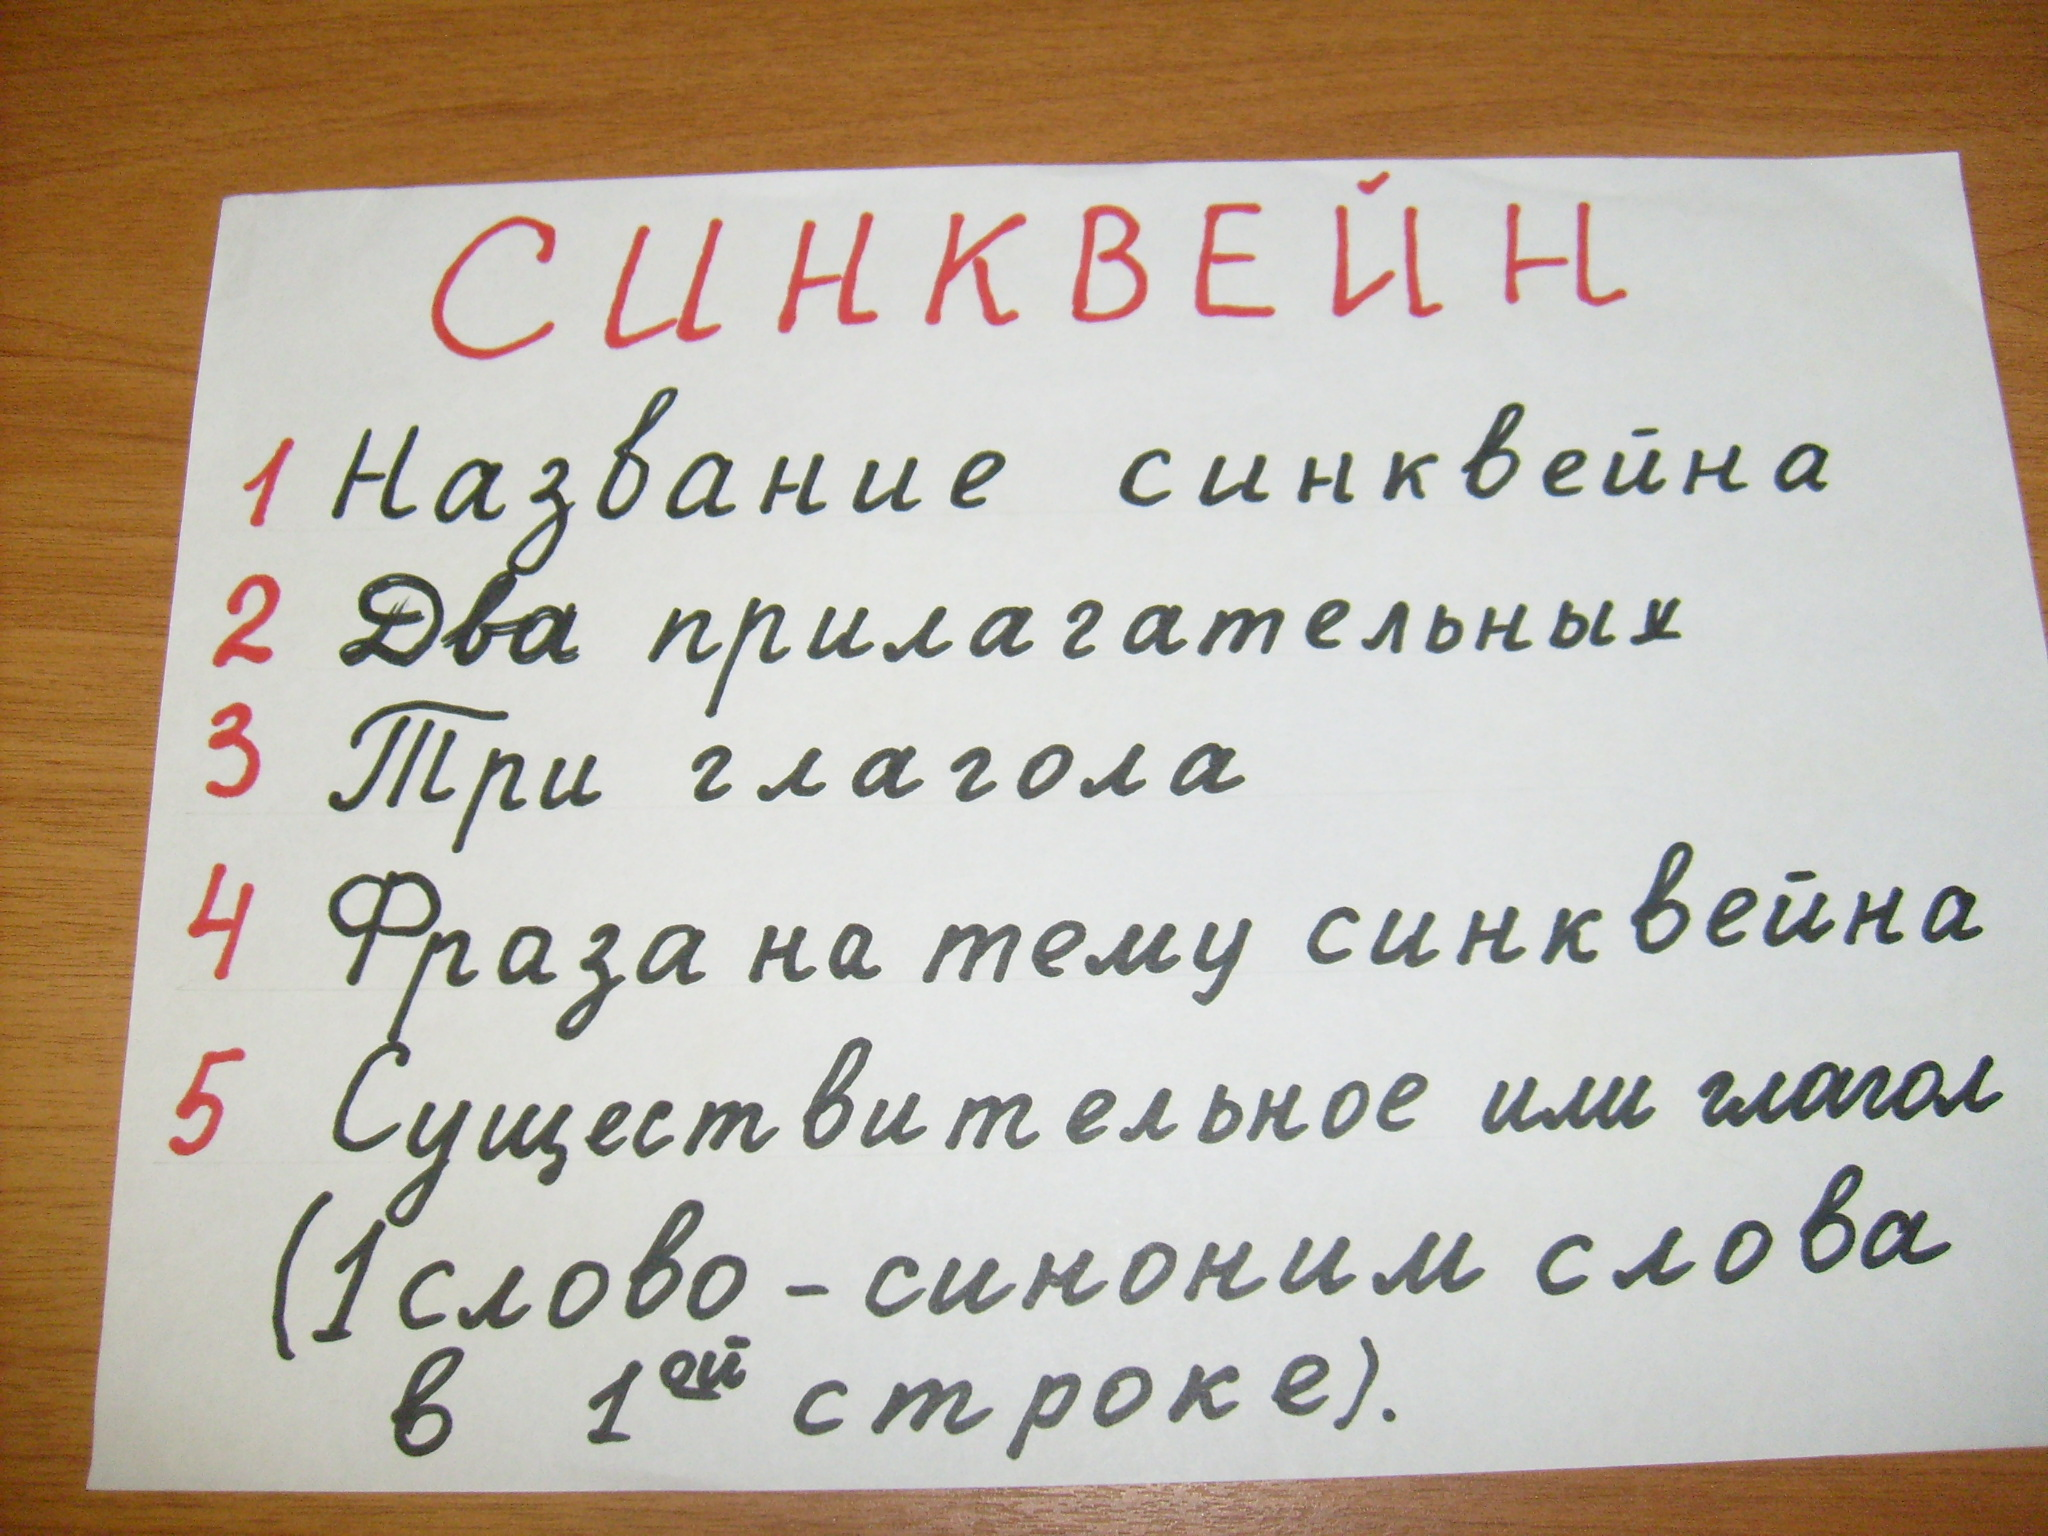 СИНКВЕЙН
1 Название синквейна
2 Два прилагательных
3 Три глагола
4 Фраза на тему синквейна
5 Существительное или глагол
(1 слово - синоним слова
в 1ой строке).